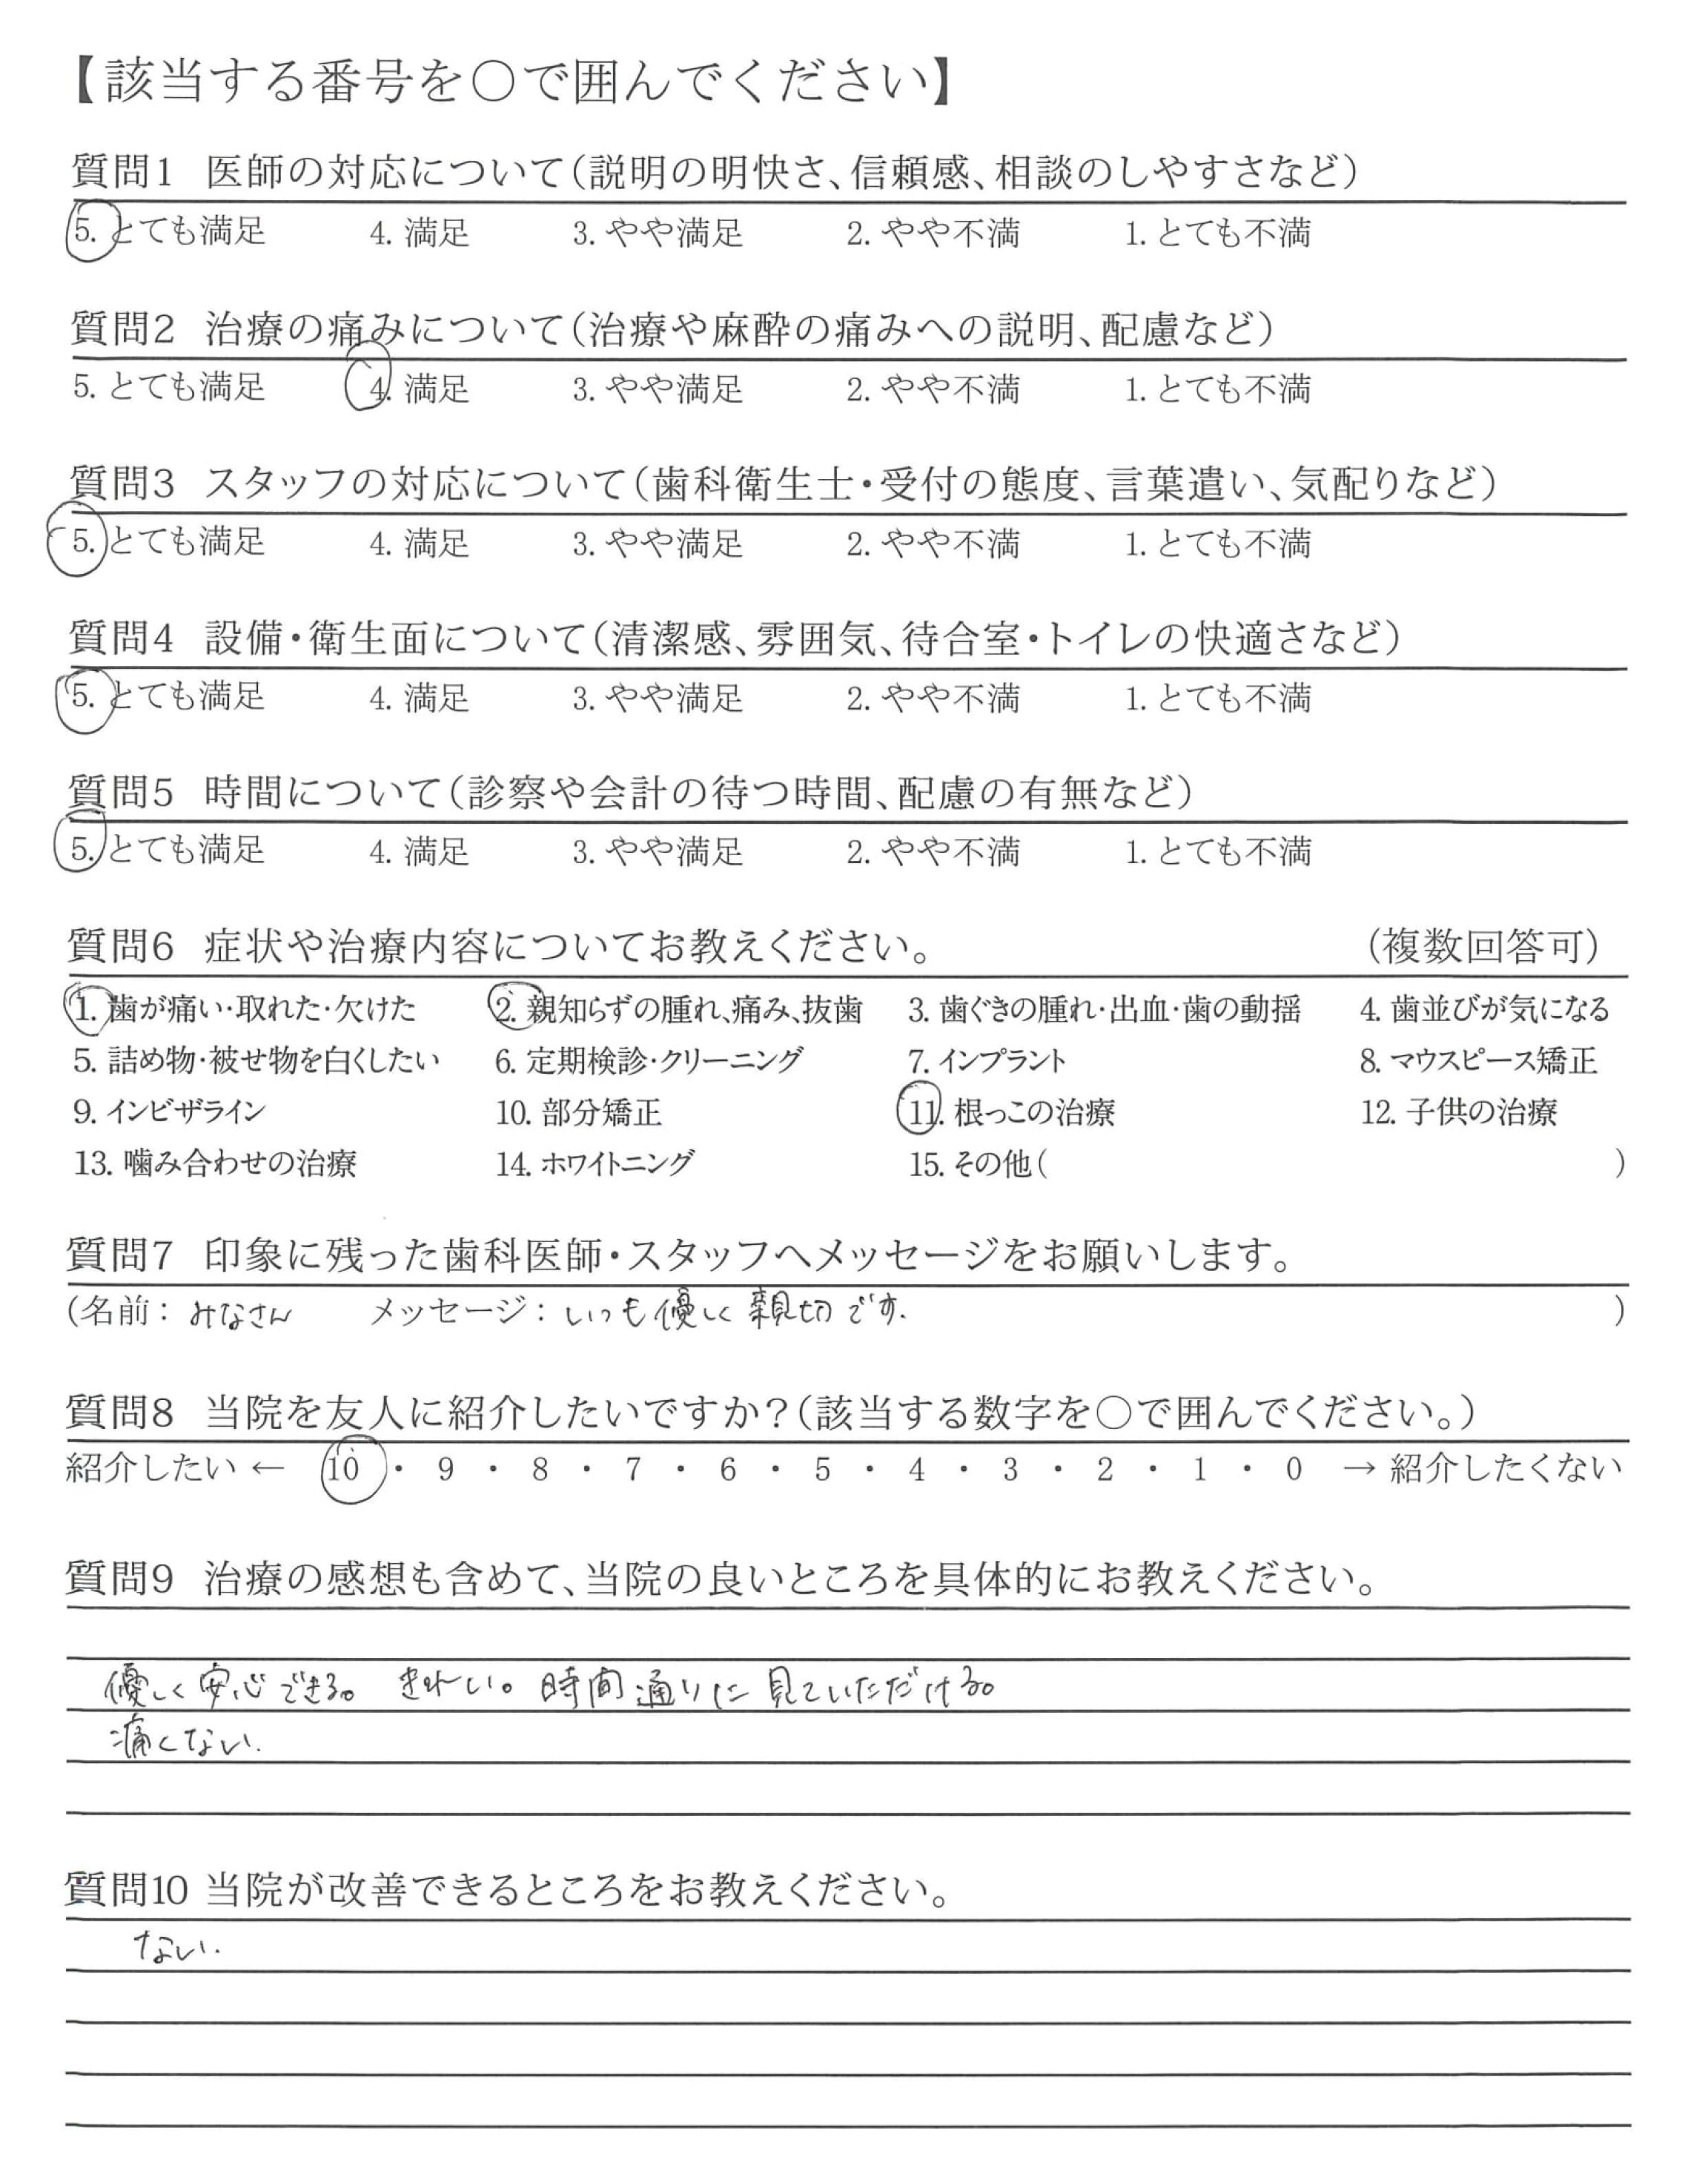 【該当する番号を○で囲んでください】
質問1 医師の対応について(説明の明快さ、信頼感、相談のしやすさなど)
5. とても満足 4. 満足 3. やや満足 2. やや不満 1. とても不満
質問2 治療の痛みについて(治療や麻酔の痛みへの説明、配慮など)
5. とても満足 4. 満足 3. やや満足 2. やや不満 1. とても不満
質問3 スタッフの対応について(歯科衛生士・受付の態度、言葉遣い、気配りなど)
5. とても満足 4. 満足 3. やや満足 2. やや不満 1. とても不満
質問4 設備・衛生面について(清潔感、雰囲気、待合室・トイレの快適さなど)
5. とても満足 4. 満足 3. やや満足 2. やや不満 1. とても不満
質問5 時間について(診察や会計の待つ時間、配慮の有無など)
5. とても満足 4. 満足 3. やや満足 2. やや不満 1. とても不満
質問6 症状や治療内容についてお教えください。 (複数回答可)
1. 歯が痛い・取れた・欠けた 2. 親知らずの腫れ、痛み、抜歯 3. 歯ぐきの腫れ・出血・歯の動揺 4. 歯並びが気になる
5. 詰め物・被せ物を白くしたい 6. 定期検診・クリーニング 7. インプラント 8. マウスピース矯正
9. インビザライン 10. 部分矯正 11. 根っこの治療 12. 子供の治療
13. 噛み合わせの治療 14. ホワイトニング 15. その他( )
質問7 印象に残った歯科医師・スタッフへメッセージをお願いします。
(名前: みなさん メッセージ: いつも優しく親切です. )
質問8 当院を友人に紹介したいですか?(該当する数字を○で囲んでください。)
紹介したい ← 10 ・ 9 ・ 8 ・ 7 ・ 6 ・ 5 ・ 4 ・ 3 ・ 2 ・ 1 ・ 0 → 紹介したくない
質問9 治療の感想も含めて、当院の良いところを具体的にお教えください。
優しく安心できる。きれい。時間通りに見ていただける。
痛くない.
質問10 当院が改善できるところをお教えください。
ない.